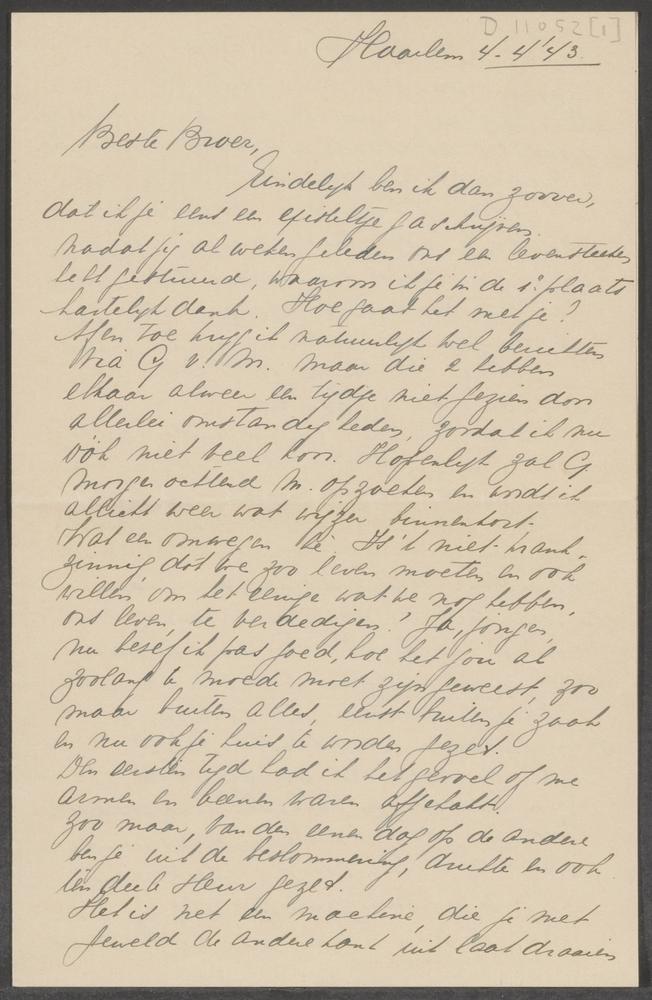 D 11052[1]
Haarlem 4/-4/'43.
Beste Broer,
Eindelijk ben ik dan zoover,
dat ik je eens een episteltje ga schrijven.
Nadat jij al weken geleden ons een levensteeken
hebt gestuurd, waarom ik je in de 1e plaats
hartelijk dank. Hoe gaat het met je?
Af en toe krijg ik natuurlijk wel berichten
via G v. M. maar die 2 hebben
elkaar alweer een tijdje niet gezien door
allerlei omstandigheden, zoodat ik nu
óók niet veel hoor. Hopenlijk zal G
morgen ochtend M. opzoeken en wordt ik
allicht weer wat wijzer binnenkort.
Wat een omwegen hè. Is 't niet krank-
zinnig, dat we zoo leven moeten en ook
willen, om het eenige wat we nog hebben,
ons leven, te verdedigen? Ja, jongen,
nu besef ik pas goed, hoe het jou al
zoolang te moede moet zijn geweest, zoo
maar buiten alles, eerst buiten je zaak
en nu ook je huis te worden gezet.
Den eersten tijd had ik het gevoel of me
armen en beenen waren afgehakt.
Zoo maar, van den eenen dag op de andere
ben je uit de beslommering, drukte en ook
ten deele sleur gezet.
Het is net een machine, die je met
geweld de andere kant uit laat draaien